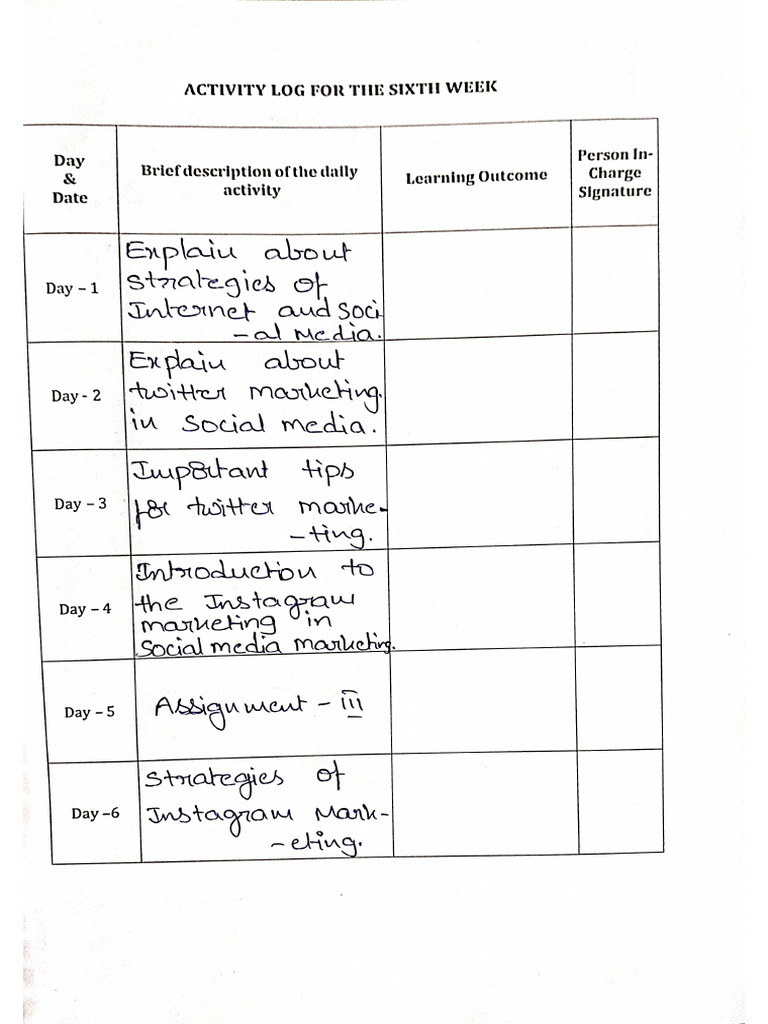 ACTIVITY LOG FOR THE SIXTH WEEK
Day
&
Date
Brief description of the daily
activity
Learning Outcome
Person In-
Charge
Signature
Day – 1
Explain about
strategies of
Internet and Soci
-al Media.
Day - 2
Explain about
twitter marketing.
in Social media.
Day – 3
Important tips
for twitter marke-
-ting.
Day – 4
Introduction to
the Instagram
marketing in
Social media marketing.
Day – 5
Assignment - III
Day –6
Strategies of
Instagram Mark-
-eting.